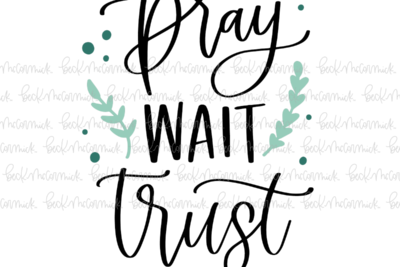 Pray
WAIT
trust